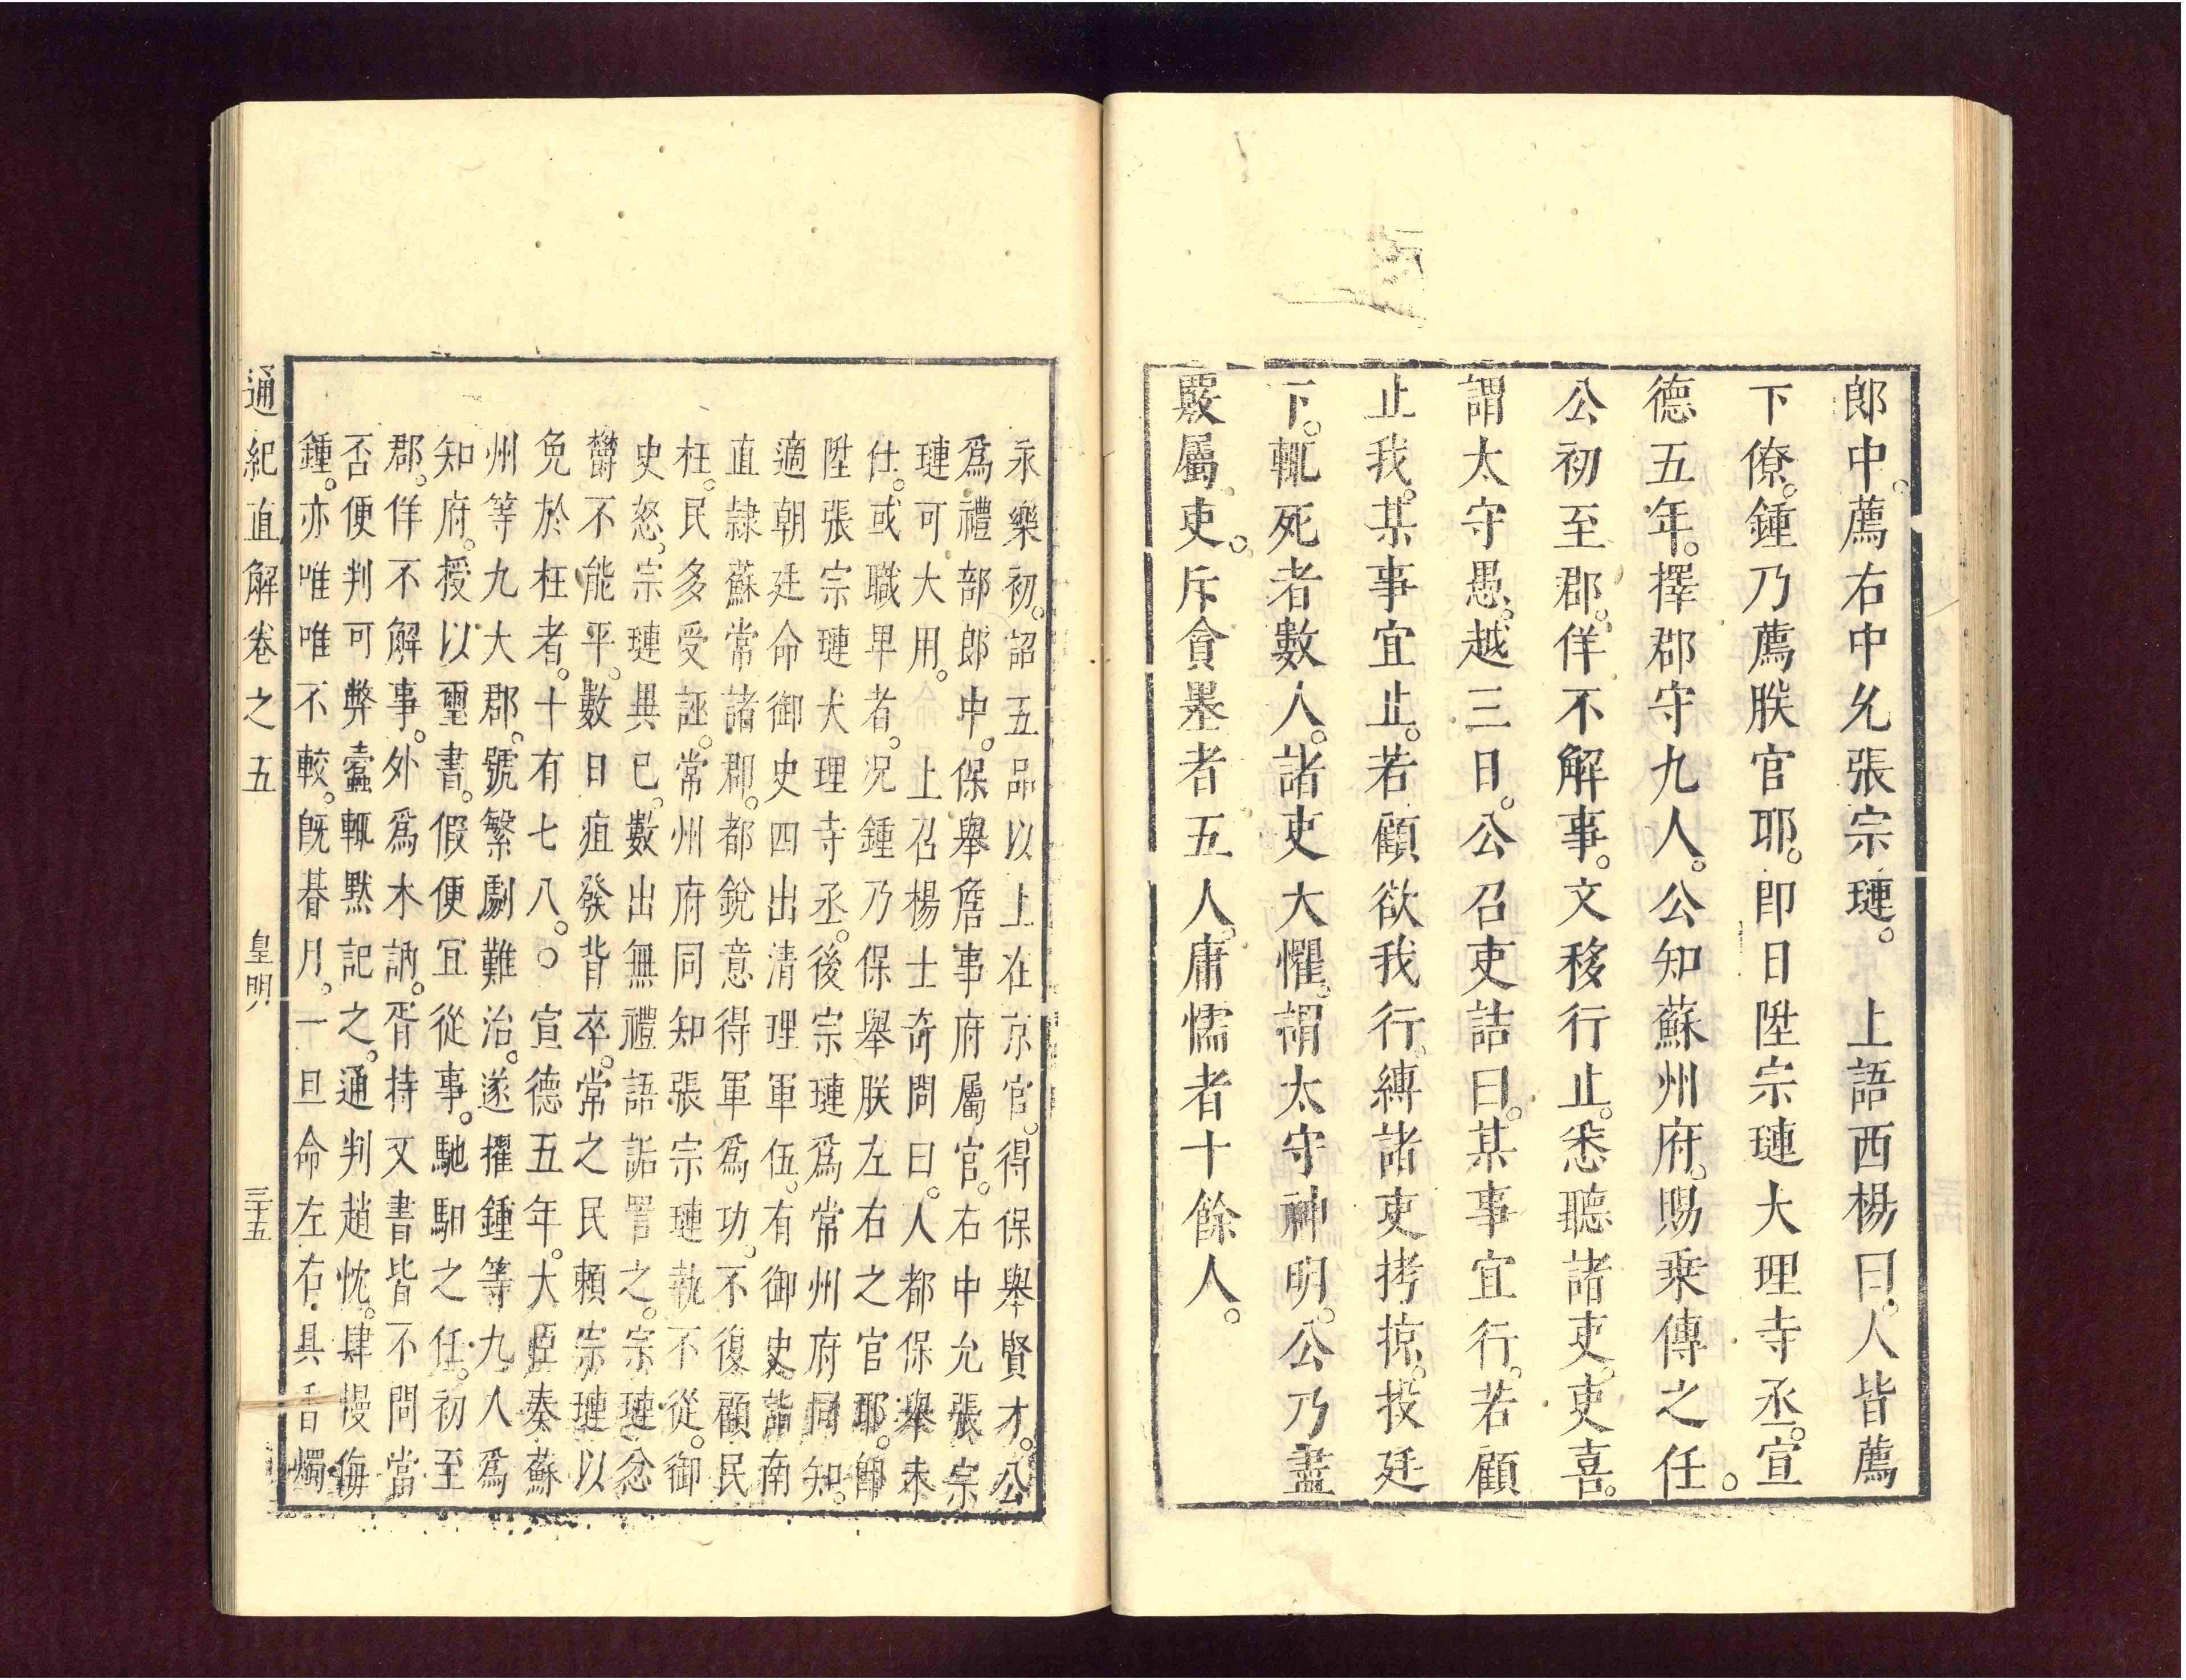 郎中。薦右中允張宗璉。　上語西楊曰。人皆薦
下僚。鍾乃薦朕官耶。即日陞宗璉大理寺丞。宣
德五年。擇郡守九人。公知蘇州府。賜乘傳之任。
公初至郡。佯不解事。文移行止。悉聽諸吏。吏喜。
謂太守愚。越三日。公召吏詰曰。某事宜行。若顧
止我。某事宜止。若顧欲我行。縛諸吏拷掠。投廷
下。輒死者數人。諸吏大懼。謂太守神明。公乃盡
覈屬吏。斥貪墨者五人。庸懦者十餘人。
永樂初。詔五品以上在京官。得保舉賢才。公
爲禮部郎中。保舉詹事府屬官。右中允張宗
璉可大用。　上召楊士奇問曰。人都保舉未
仕。或職卑者。况鍾乃保舉朕左右之官耶。卽
陞張宗璉大理寺丞。後宗璉爲常州府同知。
適朝廷命御史四出清理軍伍。有御史蒞南
直隷蘇常諸郡。都銳意得軍爲功。不復顧民
枉。民多受誣。常州府同知張宗璉執不從。御
史怒。宗璉異已。數出無禮語詬詈之。宗璉忿
欝不能平。數日疽發背卒。常之民賴宗璉以
免於枉者。十有七八。○宣德五年。大臣奏蘇
州等九大郡。號繁劇難治。遂擢鍾等九人爲
知府。授以璽書。假便宜從事。馳馹之任。初至
郡。佯不解事。外爲木訥。胥持文書皆不問當
否便判可弊蠧輒默記之。通判趙忱。肆慢侮
鍾。亦唯唯不較。旣朞月。一旦命左右具香燭
通紀直解卷之五　皇明　三十五